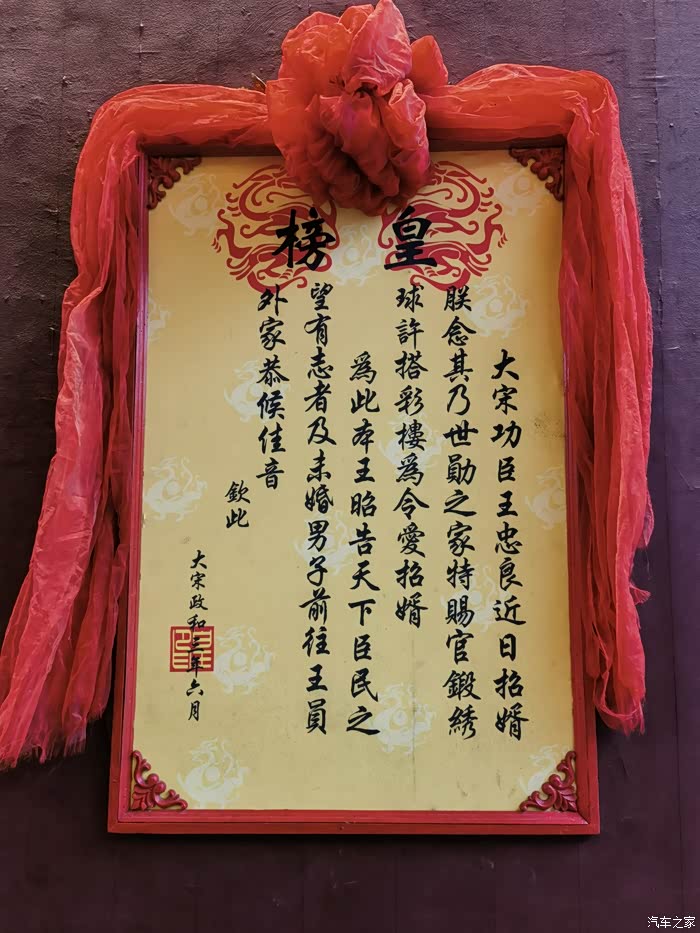 皇榜
大宋功臣王忠良近日招婿
朕念其乃世勛之家特賜官鍛綉
球許搭彩樓爲令愛招婿
爲此本王昭告天下臣民之
望有志者及未婚男子前往王員
外家恭候佳音
欽此
大宋政和三年六月
汽车之家